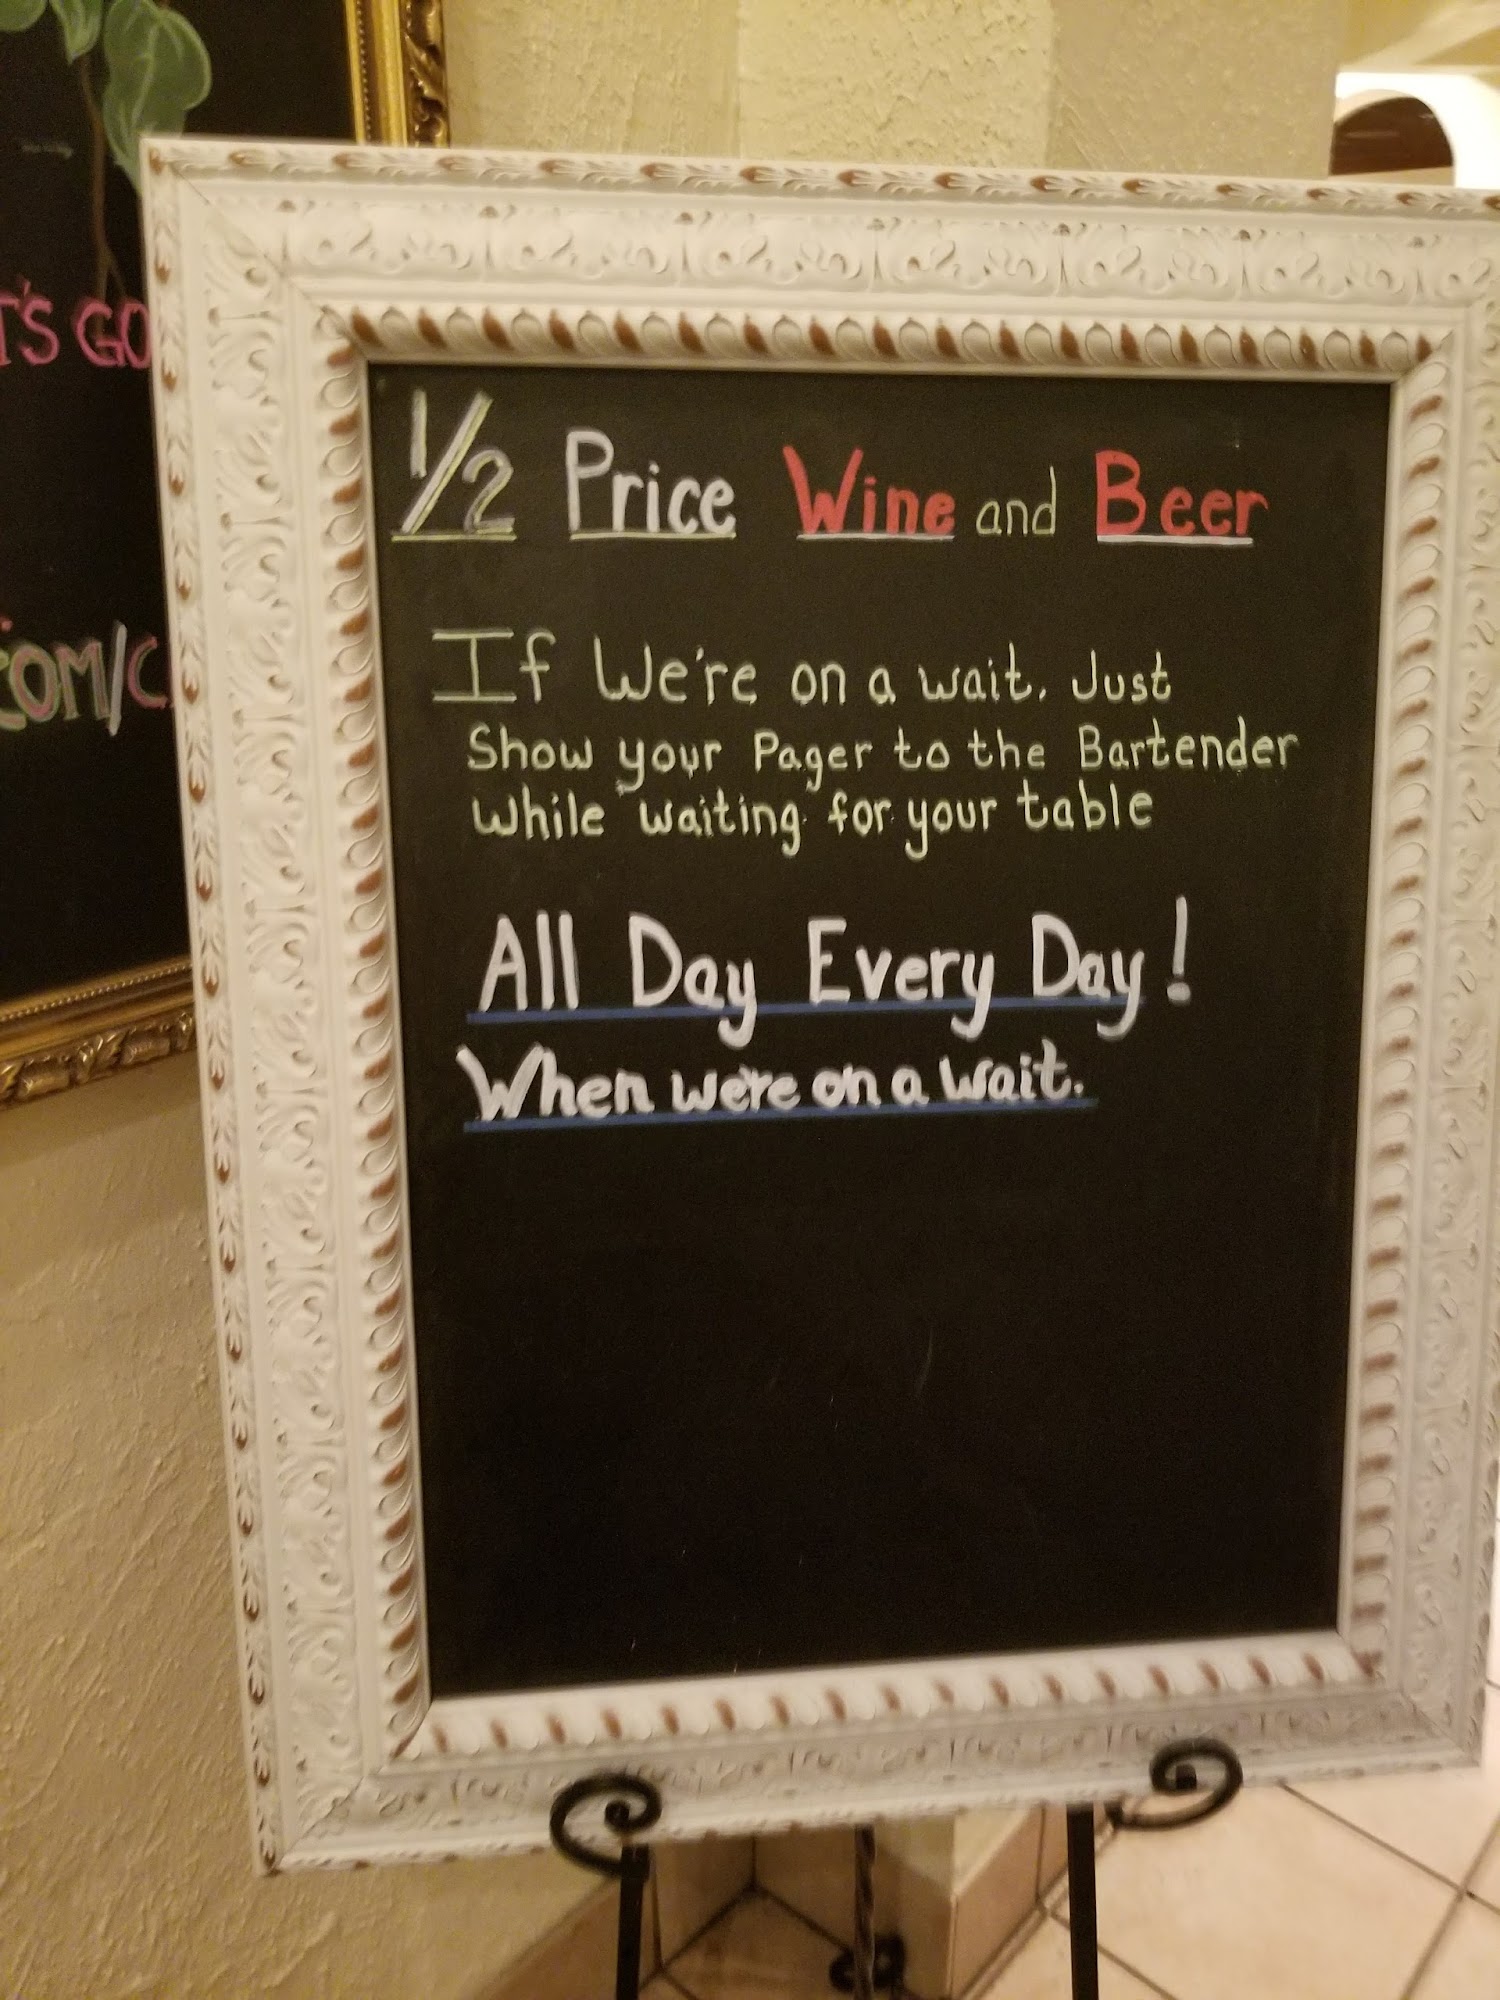 T'S GO
COM/C
1/2 Price Wine and Beer
If We're on a wait. Just
Show your Pager to the Bartender
While waiting for your table
All Day Every Day!
When we're on a wait.